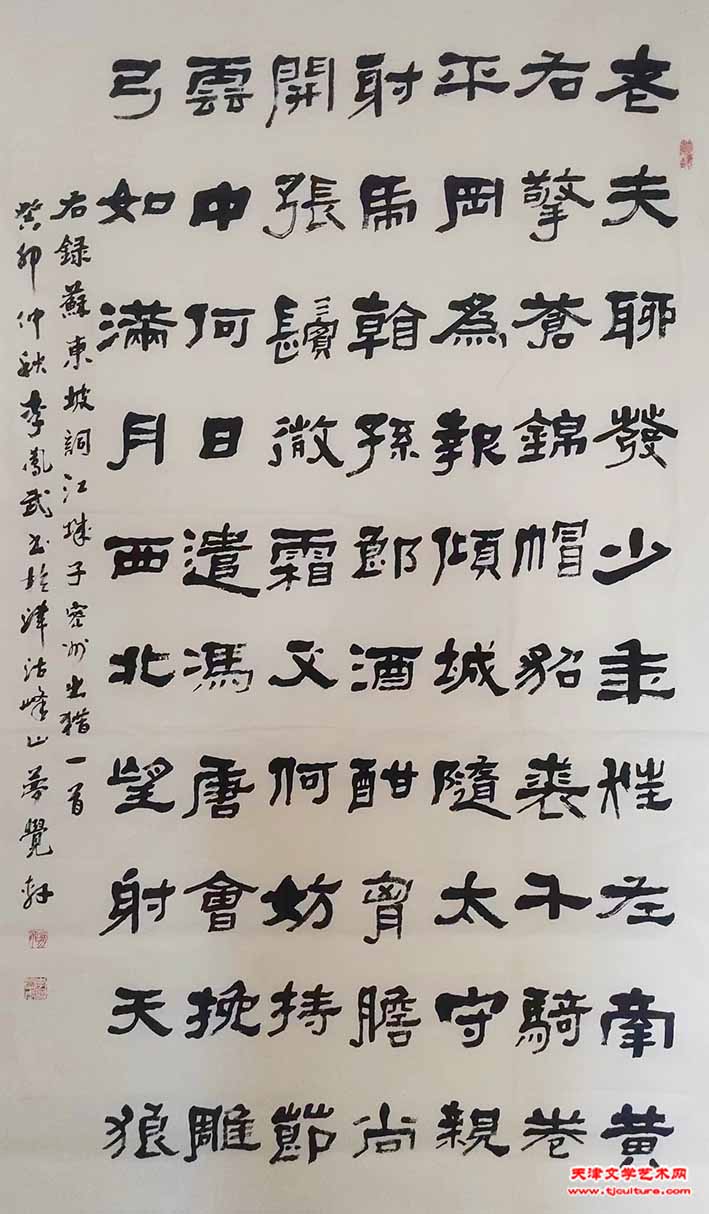 老夫聊發少年狂左牽黃
右擎蒼錦帽貂裘千騎卷
平岡為報傾城隨太守親
射虎看孫郎酒酣胷膽尚
開張鬢微霜又何妨持節
雲中何日遣馮唐會挽雕
弓如滿月西北望射天狼
右録蘇東坡詞江城子密州出獵一首
癸卯仲秋李鳳武书於津沽峰山夢覺軒
天津文学艺术网
www.tjculture.com